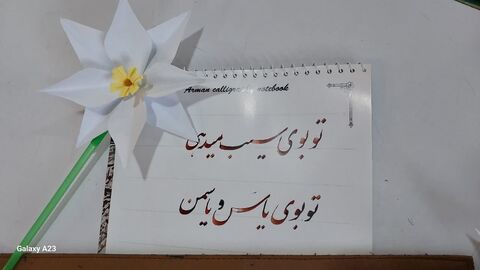 Arman calligraphy notebook
تو بوی سیب میدهی
تو بوی یاس و یاسمن
Galaxy A23